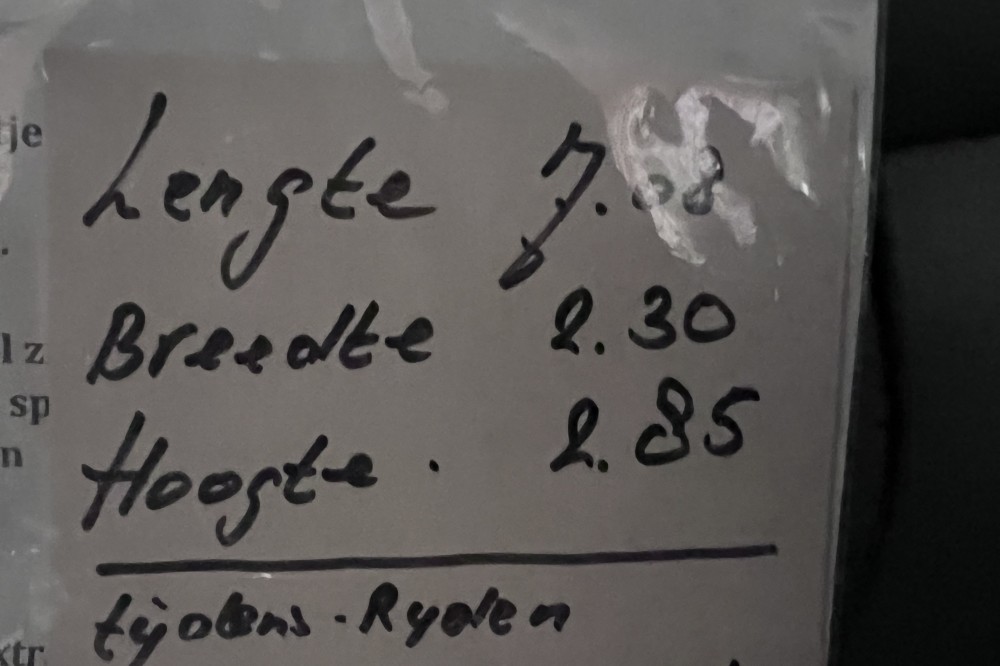 tje
Lengte 7.08
.
Breedte 2.30
l z
sp
Hoogte . 2.85
n
tijdens - Ryden
ktr.